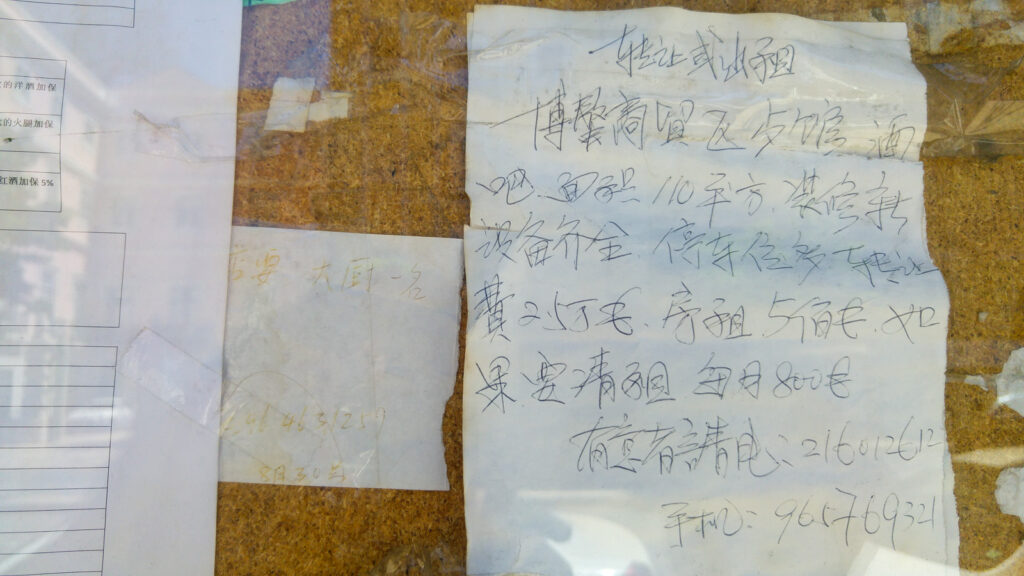 的洋酒加保
的火腿加保
红酒加保5%
需要 大厨一名
8月30号
转让或出租
博馨商贸区5馆 酒
吧 面积 110平方 装修新
设备齐全 停车位多 转让
费2.5万毛、房租5佰毛、如
果要清租 每月800毛
有意者请电：216012612
手机：965769321